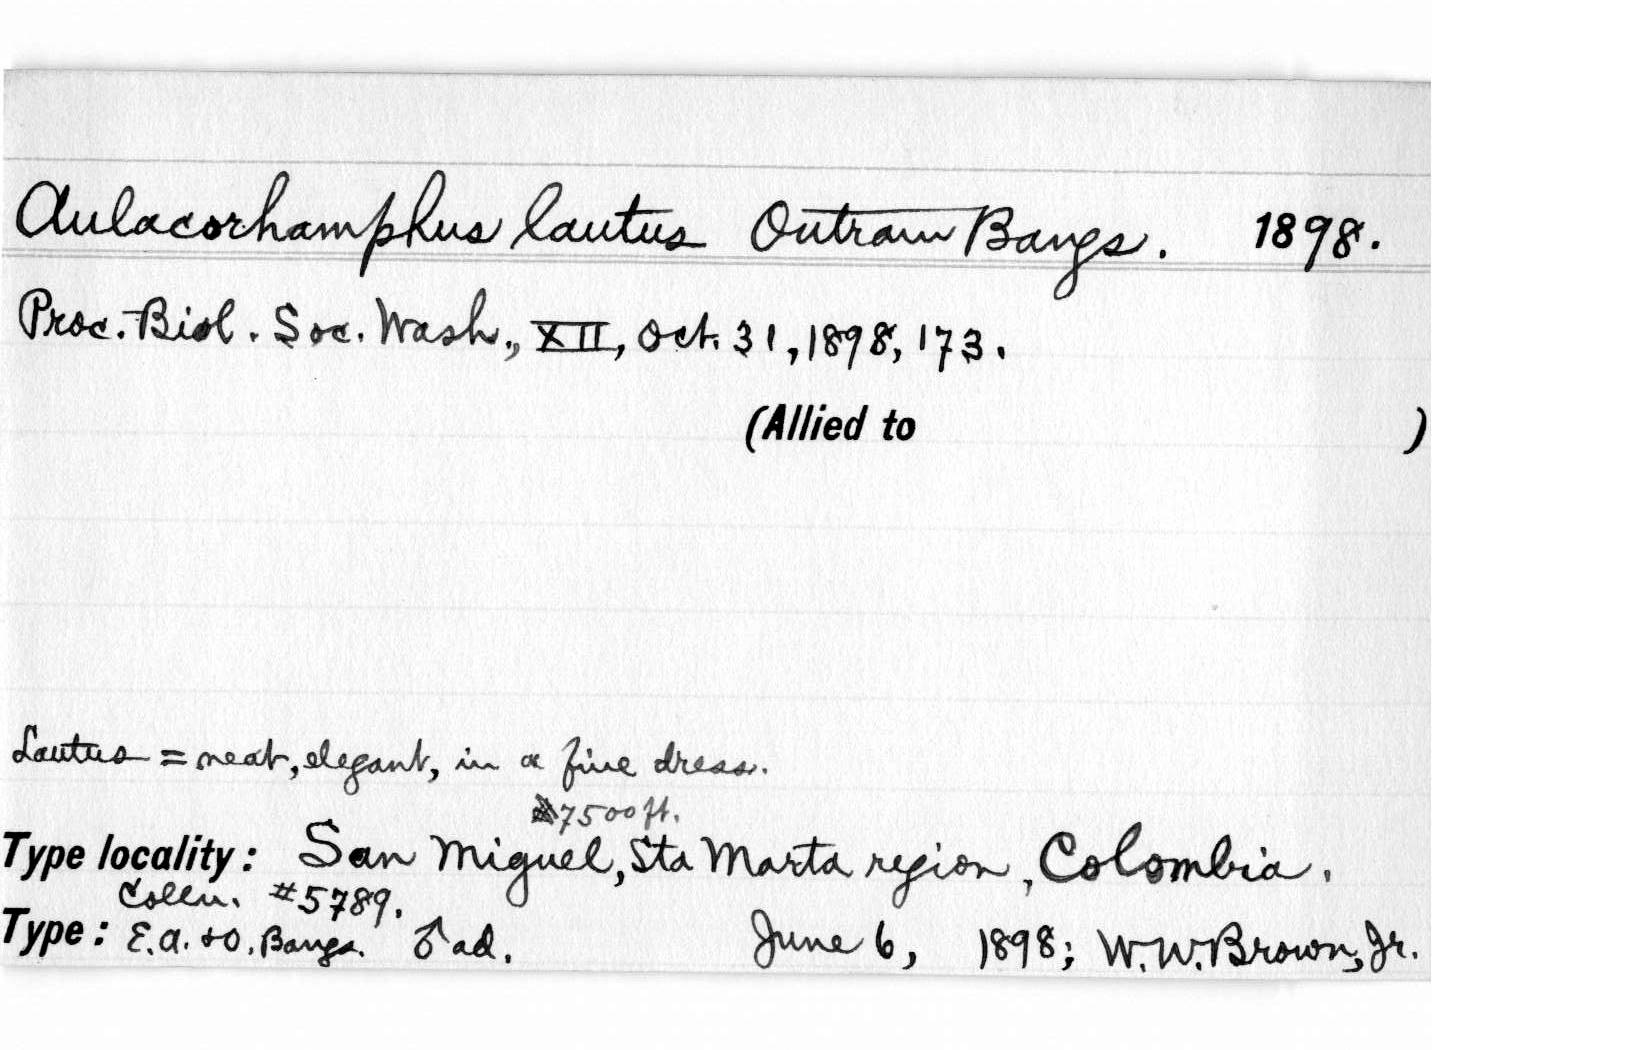 Aulacorhamphus lautus Outram Bangs. 1898.
Proc. Biol. Soc. Wash., XII, Oct. 31, 1898, 173.
(Allied to )
Lautus = neat, elegant, in a fine dress.
7500 ft.
Type locality: San Miguel, Sta Marta region, Colombia.
Colln. #5789.
Type: E.A. & O. Bangs. ♂ ad. June 6, 1898; W.W. Brown, Jr.